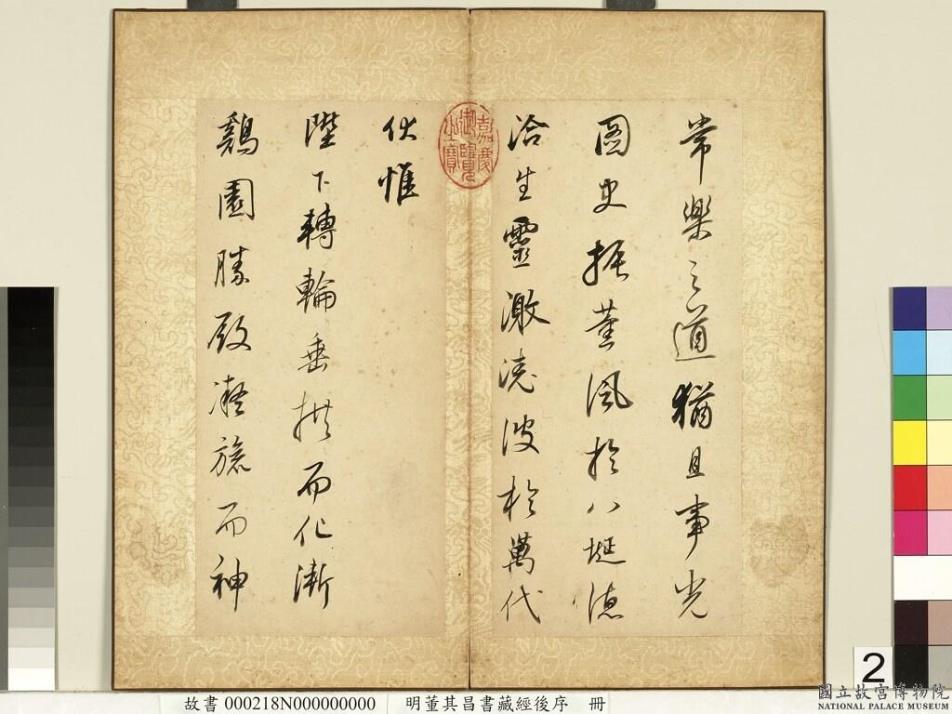 常樂之道猶且事光
圖史振薰風於八埏德
洽生靈激澆波於萬代
伏惟
陛下轉輪垂拱而化漸
鷄園勝殿凝旒而神
嘉慶御覽之寶
2
故書 000218N000000000 明董其昌書藏經後序 冊
國立故宮博物院
NATIONAL PALACE MUSEUM